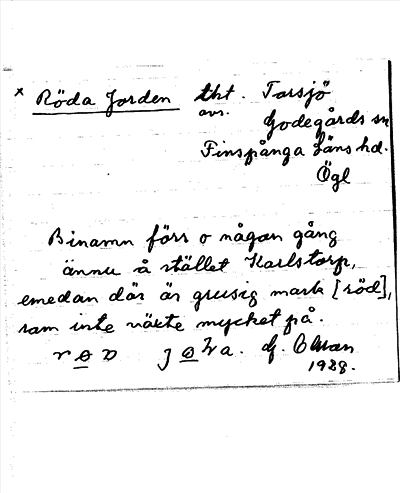 x Röda Jorden tht. Torsjö
avs. Godegårds sn
Finspånga läns hd.
Ögl
Binamn förr o någon gång
ännu å stället Karlstorp,
emedan där är grusig mark [röd],
som inte växte mycket på.
1928.